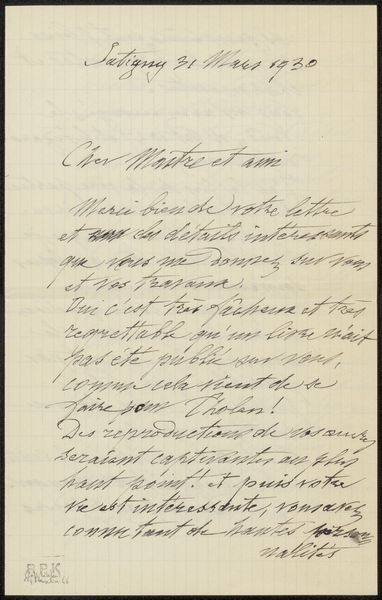 Satigny 31 Mars 1930
Cher Maître et ami
Merci bien de votre lettre
et des détails intéressants
que vous me donnez sur vous
et vos travaux.
Oui c'est très fâcheux et très
regrettable qu'un livre n'ait
pas été publié sur vous,
comme cela vient de se
faire pour Tholen!
Des reproductions de vos œuvres
seraient captivantes au plus
haut point! et puis votre
vie est intéressante, vous avez
connu tant de hautes person
nalités
R.P.K